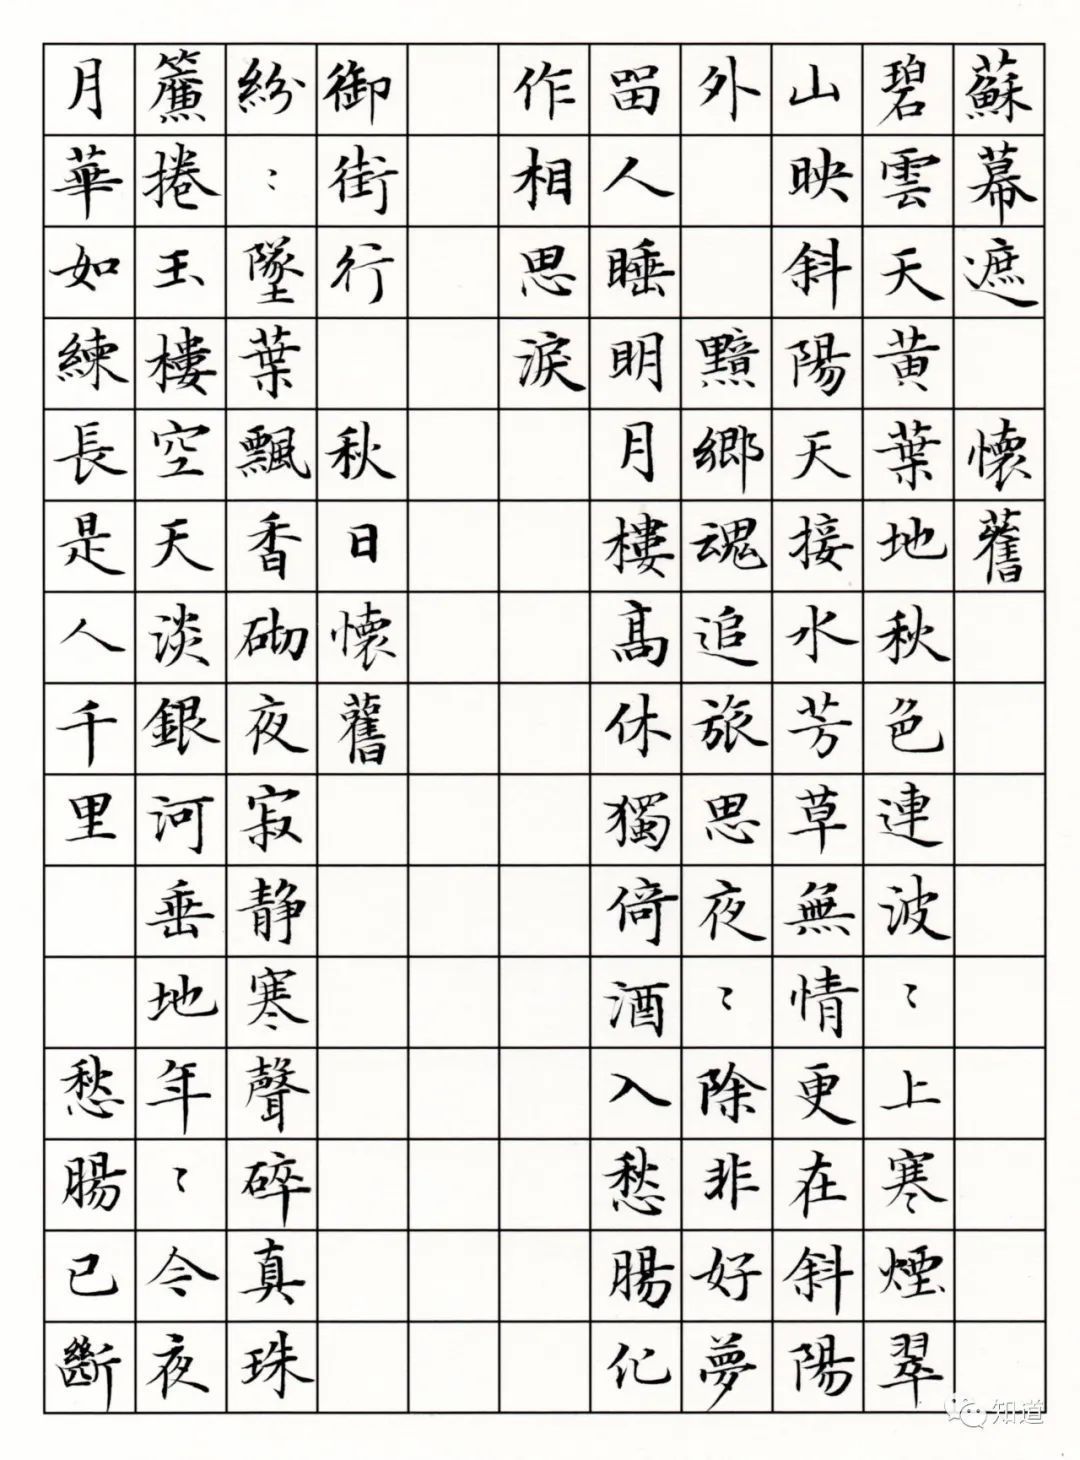 蘇幕遮 懷舊
碧雲天黃葉地秋色連波〻上寒煙翠
山映斜陽天接水芳草無情更在斜陽
外 黯鄉魂追旅思夜〻除非好夢
留人睡明月樓高休獨倚酒入愁腸化
作相思淚
御街行 秋日懷舊
紛〻墜葉飄香砌夜寂靜寒聲碎真珠
簾捲玉樓空天淡銀河垂地年〻今夜
月華如練長是人千里 愁腸已斷
知道